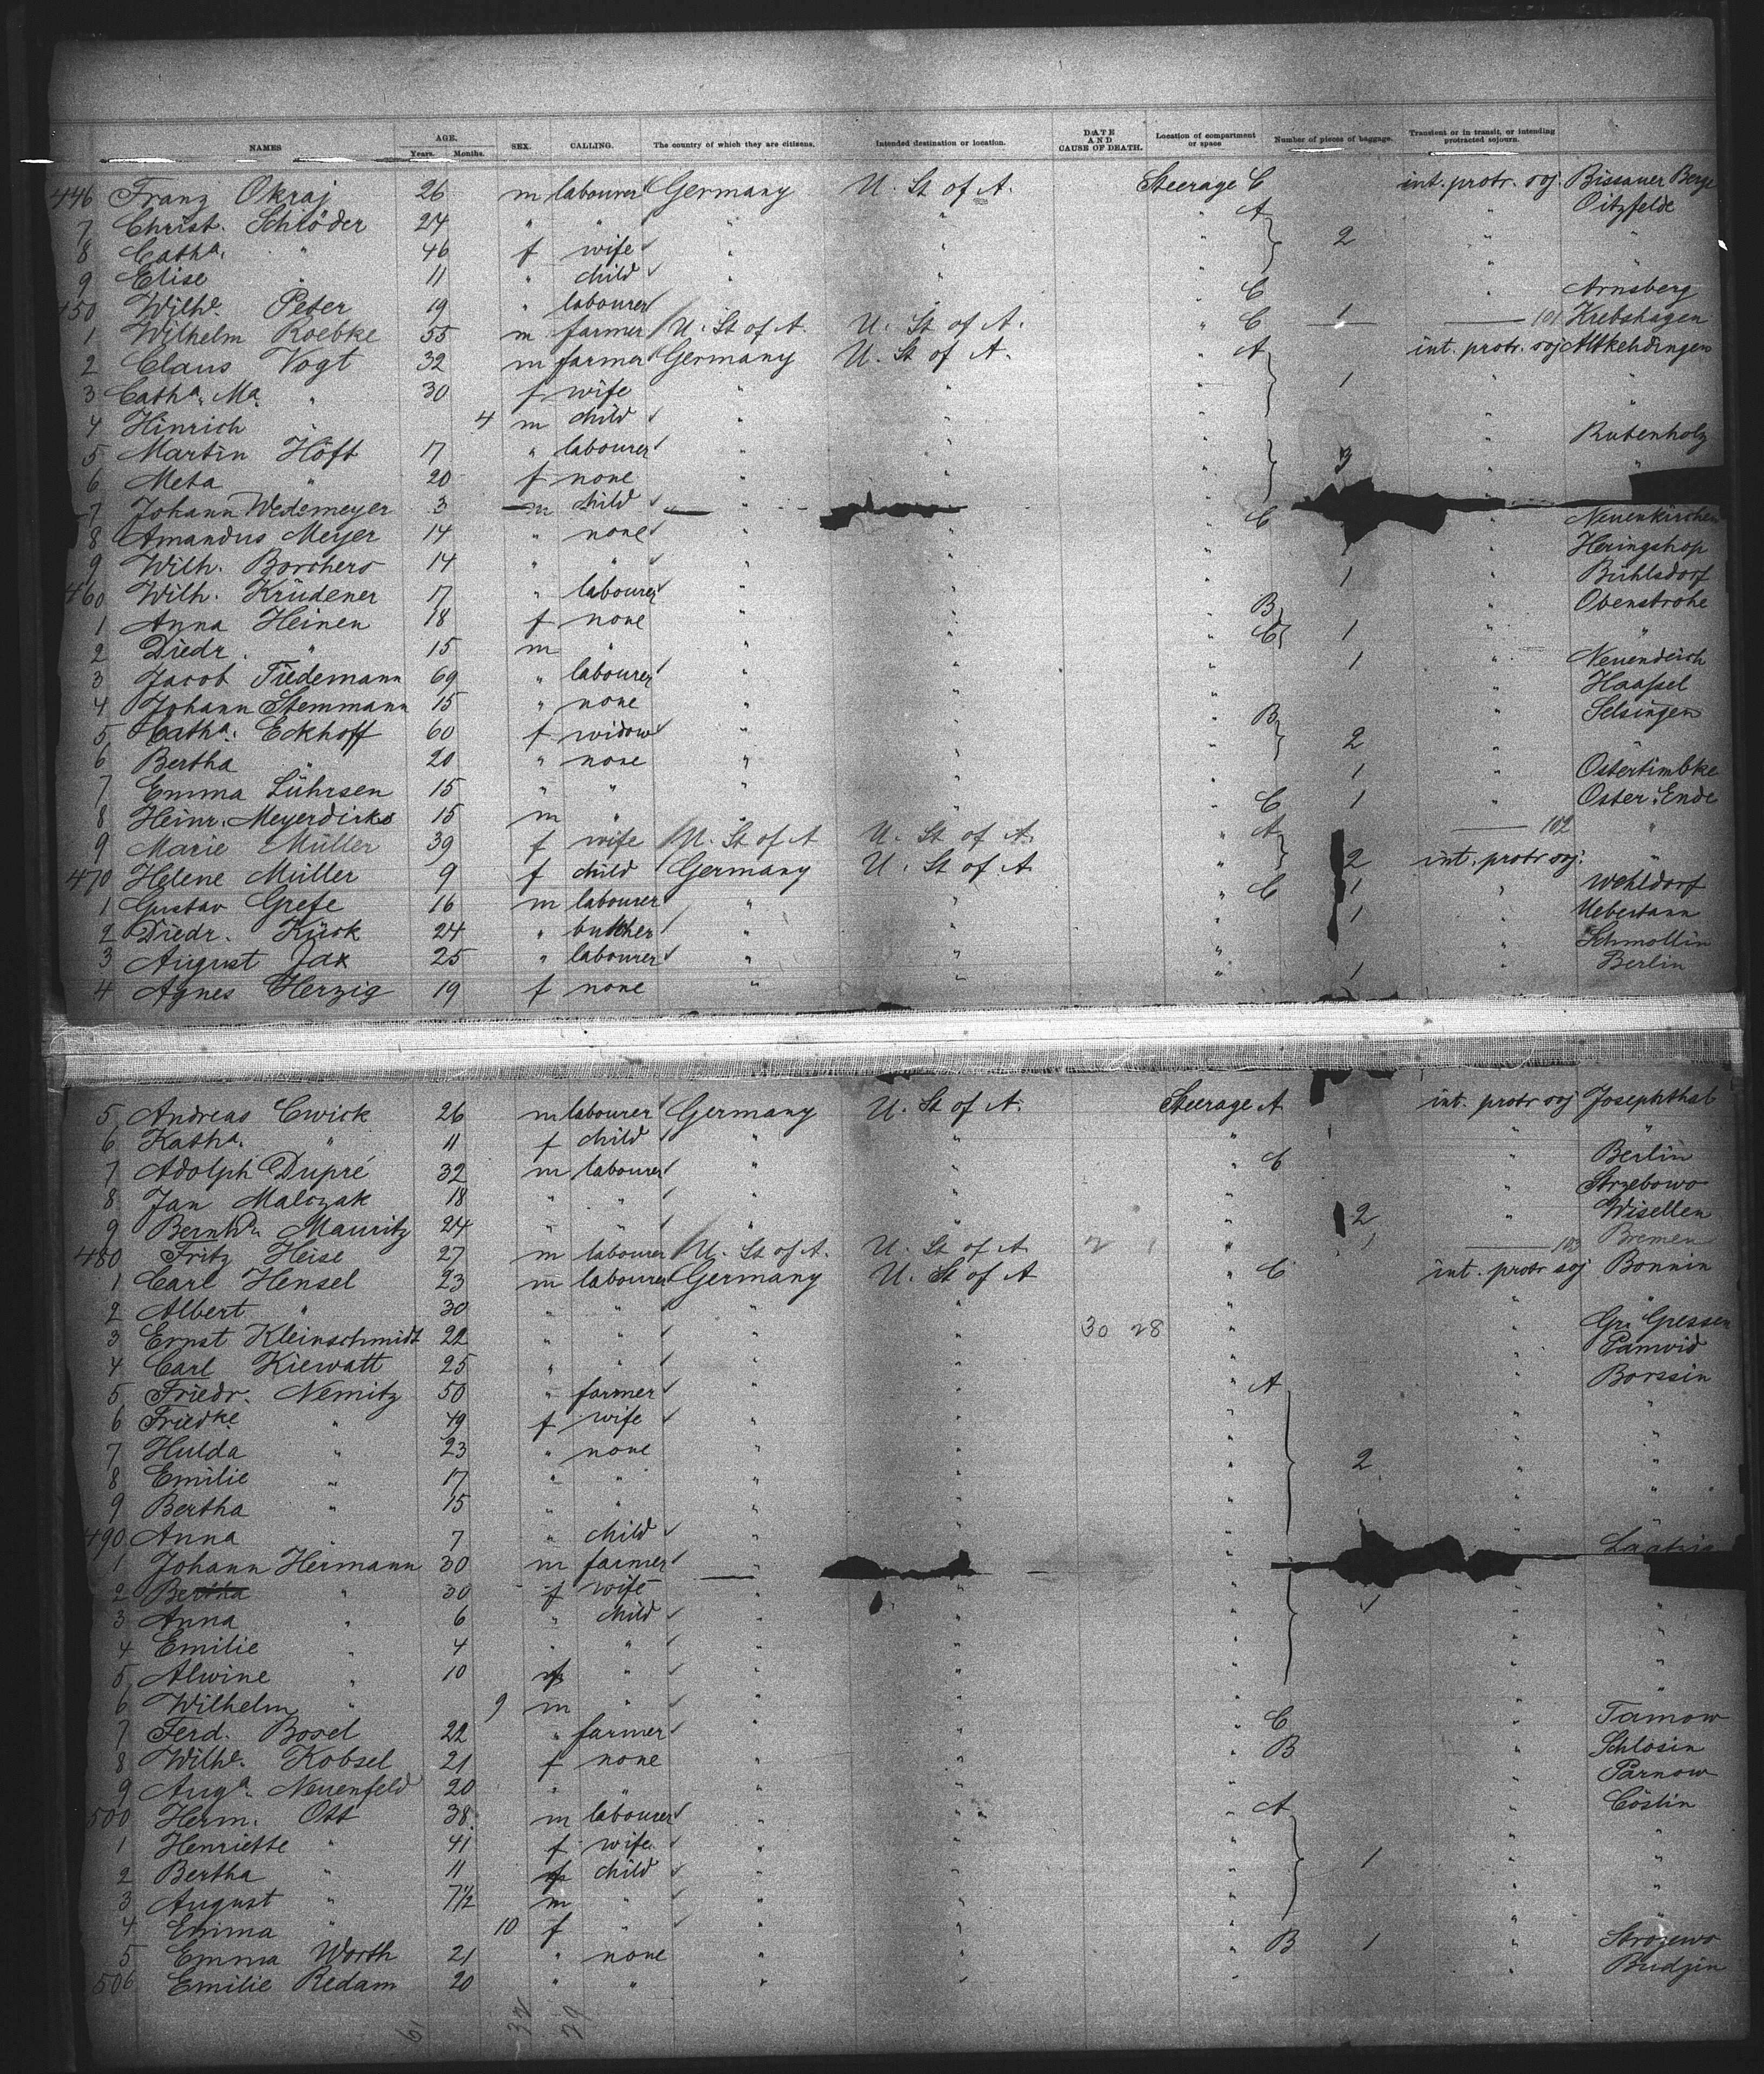 NAMES AGE. Years. Months. SEX. CALLING. The country of which they are citizens. Intended destination or location. DATE AND CAUSE OF DEATH. Location of compartment or space Number of pieces of baggage. Transient or in transit, or intending protracted sojourn.
446 Franz Okraj 26 m labourer Germany U. St of A. Steerage C int. protr. soj. Bissauer Berge
7 Christ. Schröder 24 " " " " " A " Oitzfelde
8 Catha. " 46 f wife " " " 2 " "
9 Elise " 11 " child " " " " "
450 Wilhe. Peter 19 " labourer " C " Arnsberg
1 Wilhelm Roebke 55 m farmer U. St of A. U. St of A. " C 1 101 Krebshagen
2 Claus Vogt 32 m farmer Germany U. St of A. " A int. protr. soj Altkehdingen
3 Catha. Ma. " 30 f wife " " " 1 " "
4 Hinrich " 4 m child " " " " "
5 Martin Höft 17 " labourer " " " 3 " Rutenholz
6 Meta " 20 f none " " " " "
7 Johann Wedemeyer 3 m child " "
8 Amandus Meyer 14 " none " " " C " Neuenkirchen
9 Wilh. Borchers 14 " " " " " " Heringshop
460 Wilh. Krüdener 17 " labourer " " " 1 " Bühlsdorf
1 Anna Heinen 18 f none " " " B " Obenstrohe
2 Diedr. " 15 m " " " " C 1 " "
3 Jacob Tiedemann 69 " labourer " " " 1 " Neuendeich
4 Johann Stemmann 15 " none " " " " Haassel
5 Catha. Eckhoff 60 f widow " " " B " Selsingen
6 Bertha " 20 " none " " " 2 "
7 Emma Lührsen 15 " " " " " 1 " Ostertimbke
8 Heinr. Meyerdirks 15 m " " " " C 1 " Oster Ende
9 Marie Müller 39 f wife U. St of A U. St of A. " A 102 "
470 Helene Müller 9 f child Germany U. St of A " 2 int. protr soj. "
1 Gustav Grefe 16 m labourer " " " C 1 " Wehldorf
2 Diedr. Kück 24 " butcher " " " 1 " Uebertann
3 August Jax 25 " labourer " " " " Schmollin
4 Agnes Herzig 19 f none " " " 1 " Berlin
5 Andreas Cwick 26 m labourer Germany U. St of A. Steerage A int. protr soj Josephthal
6 Katha. " 11 f child " " " " "
7 Adolph Dupré 32 m labourer " " " C " Berlin
8 Jan Malczak 18 " " " " " " Strzebowo
9 Bernhd. Mauritz 24 " " " " " 2 " Wisellen
480 Fritz Heise 27 m labourer U. St of A. U. St of A 2 1 " 1 103 Bremen
1 Carl Hensel 23 m labourer Germany U. St of A " C int. protr soj Bonnin
2 Albert " 30 " " " " " " "
3 Ernst Kleinschmidt 22 " " " " 30 28 " " Gr. Gressen
4 Carl Kiewatt 25 " " " " " " Pamwid
5 Friedr. Nemitz 50 " farmer " " " A " Borssin
6 Friedke " 49 f wife " " " " "
7 Hulda " 23 " none " " " " "
8 Emilie " 17 " " " " " 2 " "
9 Bertha " 15 " " " " " " "
490 Anna " 7 " child " " " "
1 Johann Hermann 30 m farmer "
2 Bertha " 30 f wife " " " "
3 Anna " 6 " child " " " 1 " "
4 Emilie " 4 " " " " " " "
5 Alwine " 10 f " " " " " "
6 Wilhelm " 9 m " " " " " "
7 Ferd. Bosel 22 " farmer " " " C " Tamow
8 Wilhe. Kobsel 21 f none " " " B " Schlosin
9 Auga. Neuenfeld 20 " " " " " " Parnow
500 Herm. Ott 38 m labourer " " " A " Cöslin
1 Henriette " 41 f wife " " " " "
2 Bertha " 11 f child " " " 1 " "
3 August " 7½ m " " " " " "
4 Emma " 10 f " " " " " "
5 Emma Worth 21 " none " " " B 1 " Strozewo
506 Emilie Redam 20 " " " " " " Budzin
61 32 29